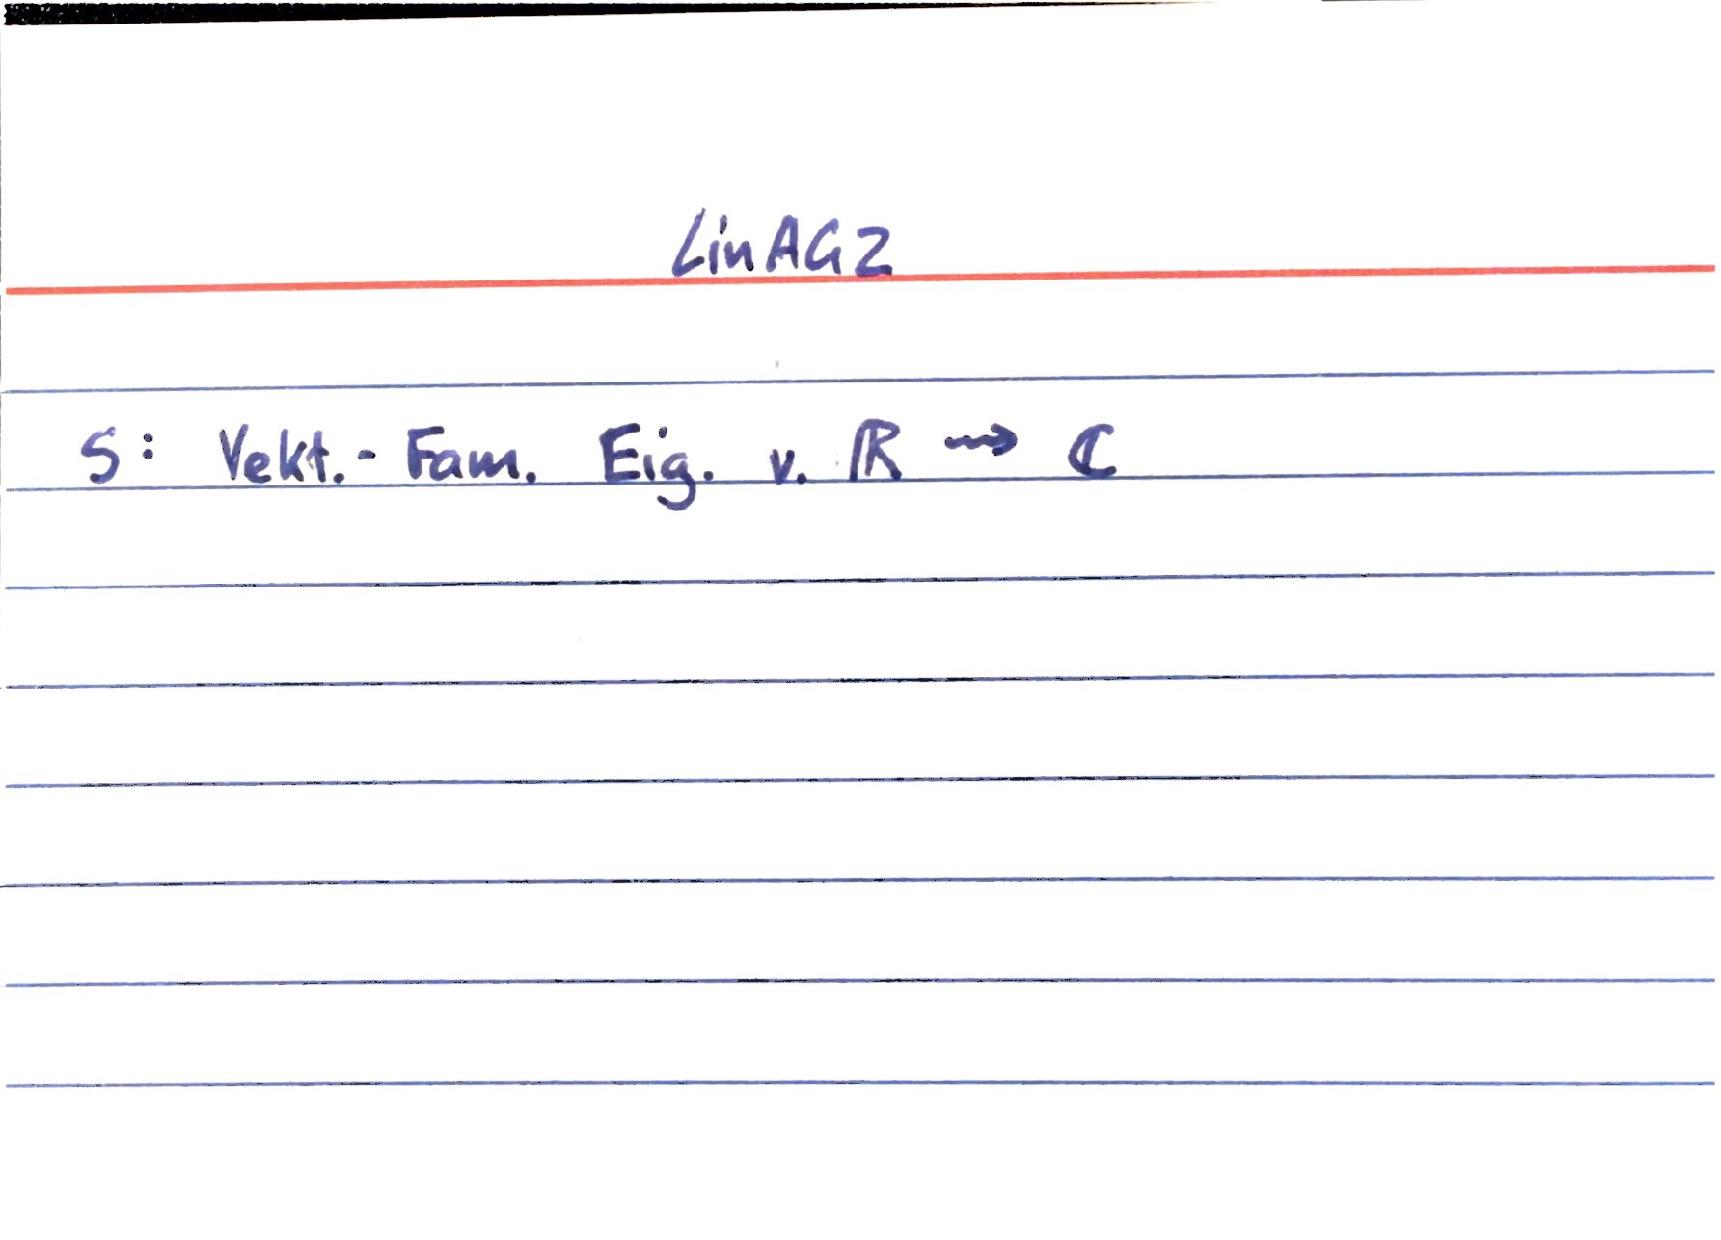 LinAG2
S: Vekt.-Fam. Eig. v. ℝ ⇝ ℂ